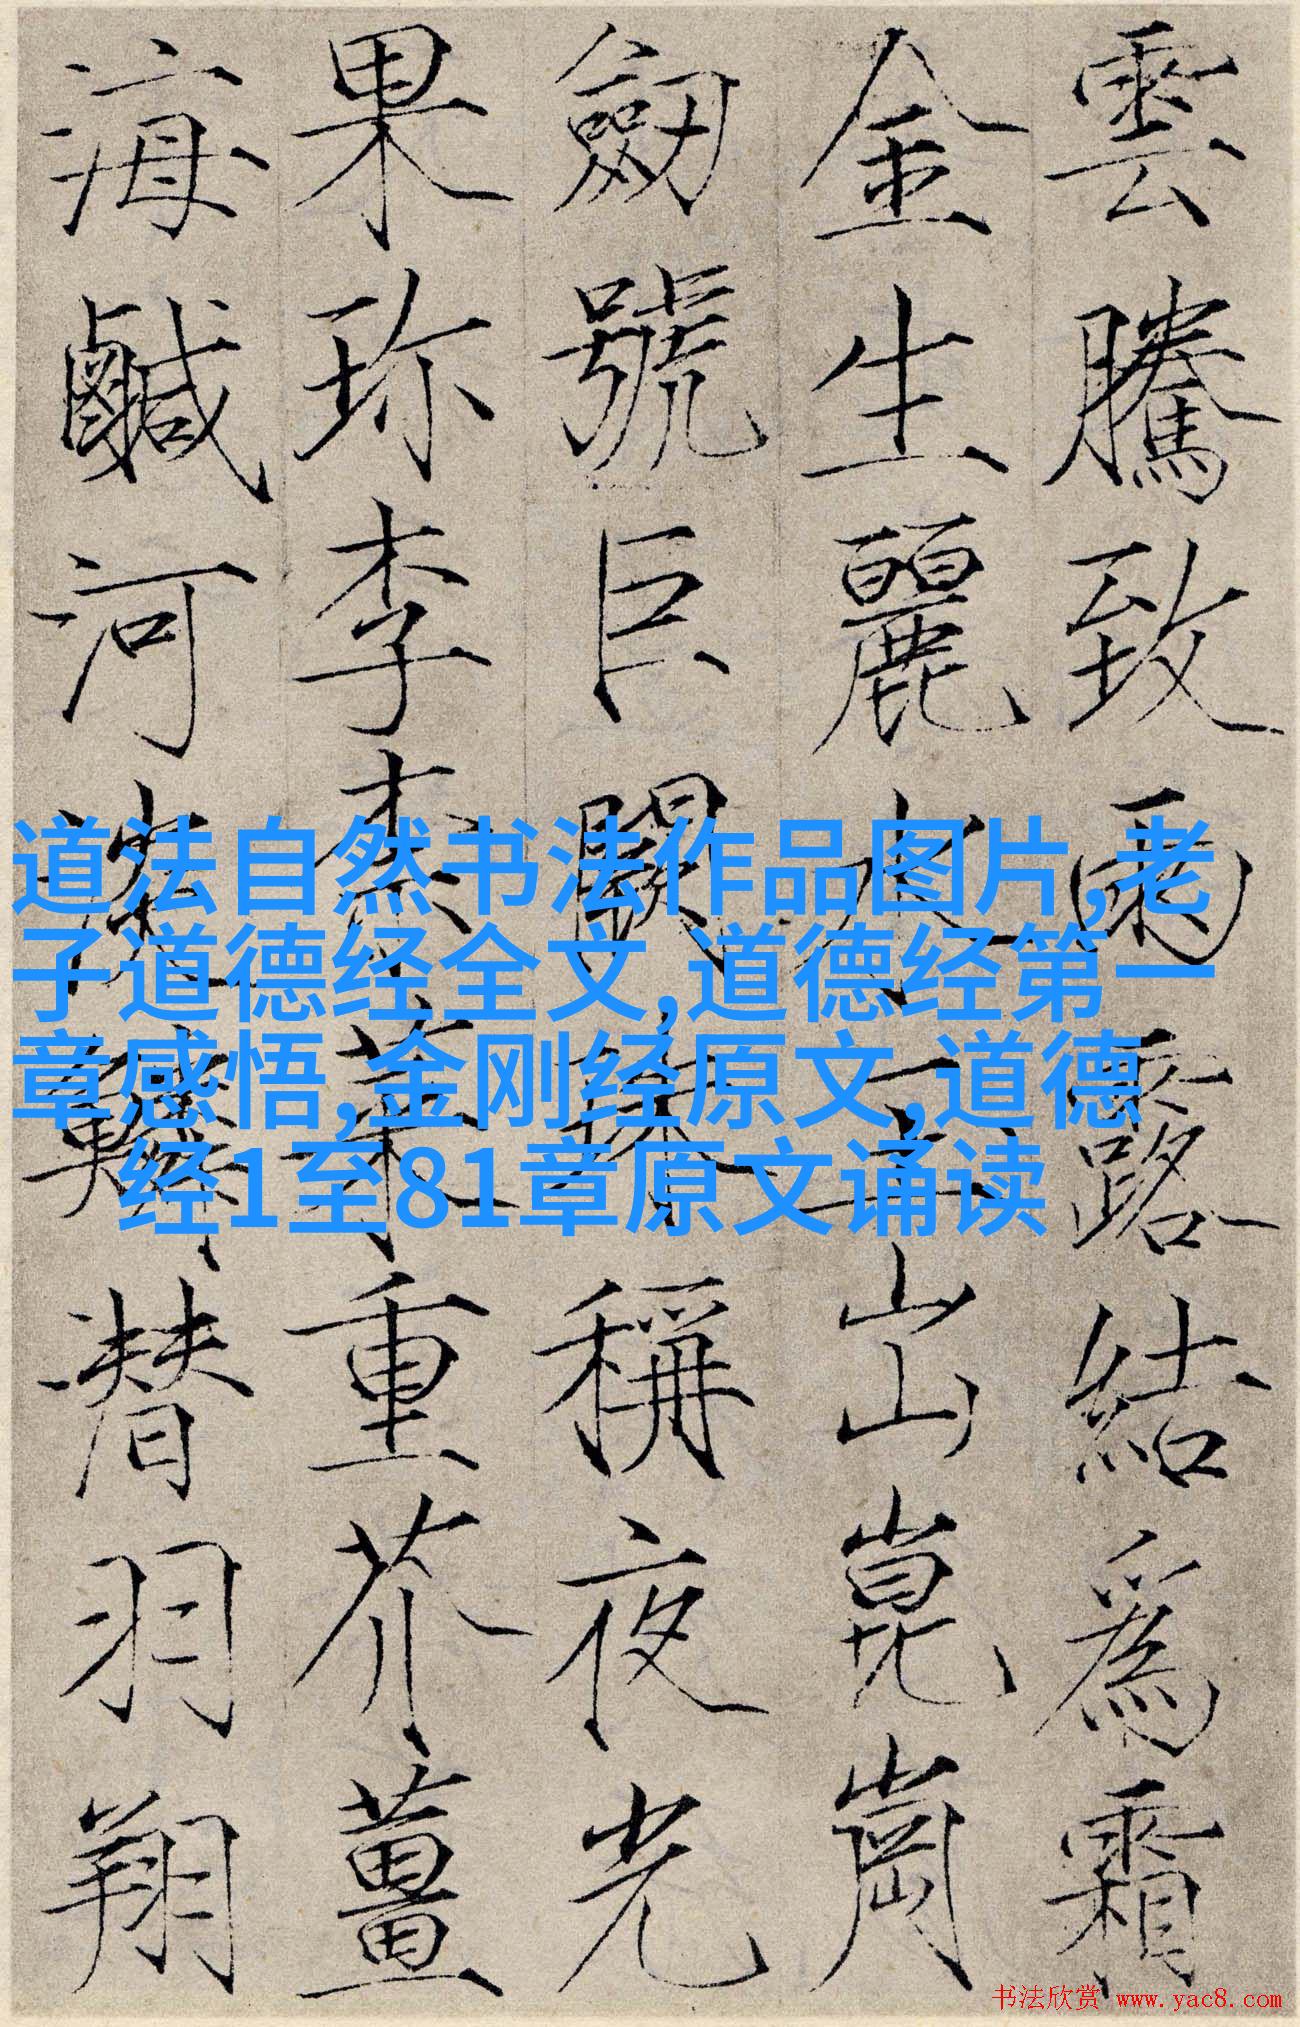 雲騰致雨露結爲霜
金生麗水玉出崑崗
劒號巨闕珠稱夜光
果珎李柰菜重芥薑
海鹹河淡鱗潜羽翔
道法自然书法作品图片,老
子道德经全文,道德经第一
章感悟,金刚经原文,道德
经1至81章原文诵读
书法欣赏 www.yac8.com